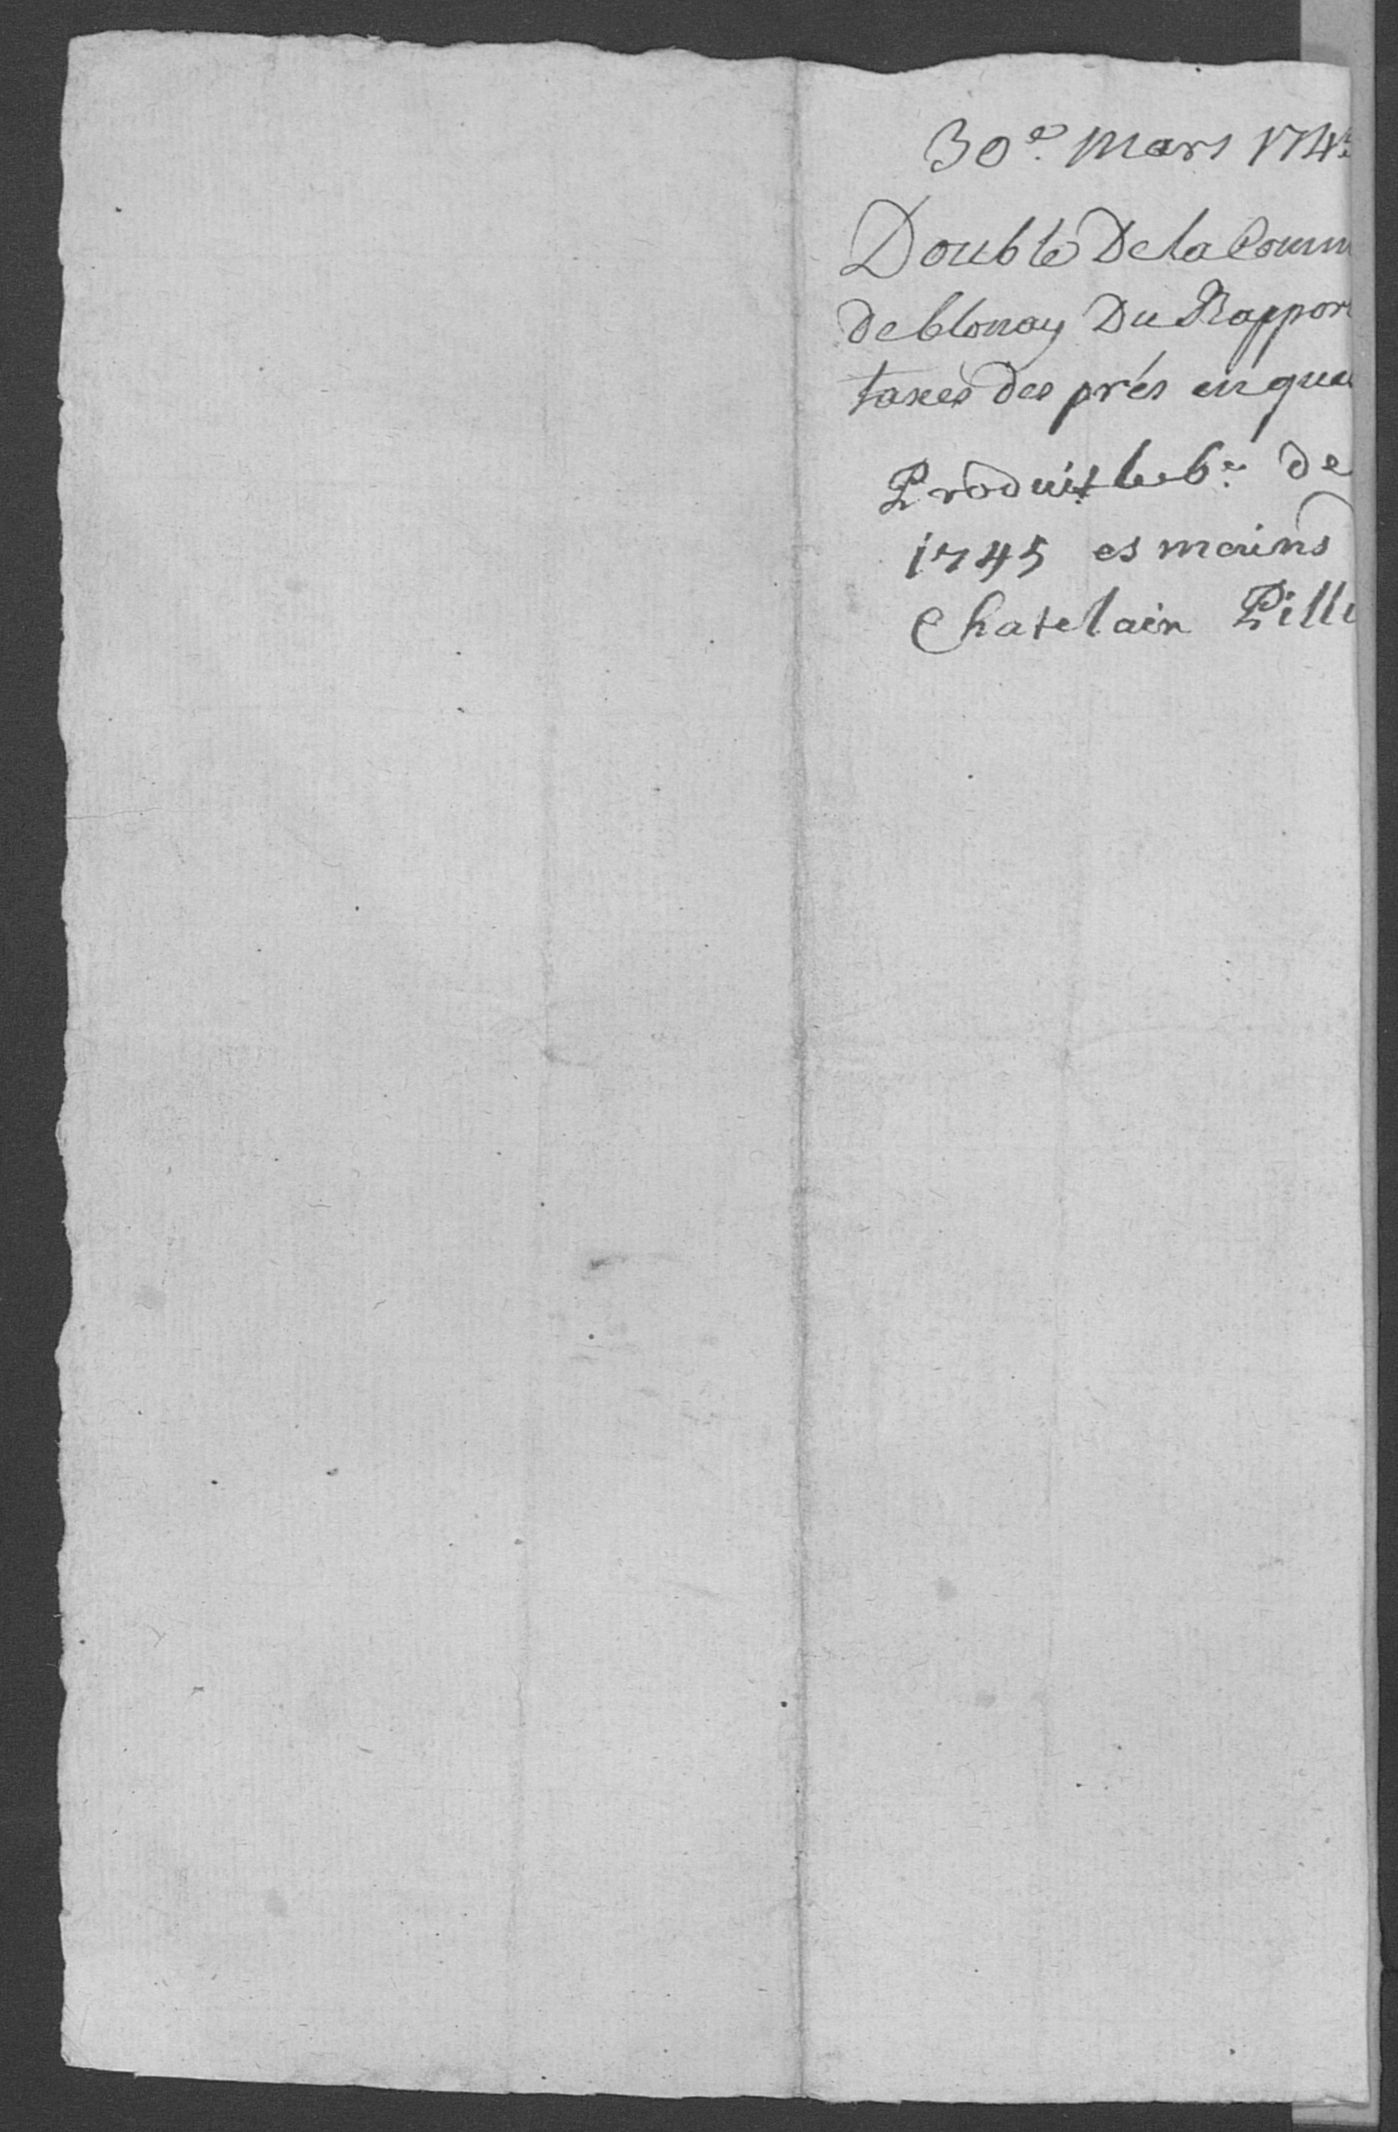 30e. Mars 174
Double De la Comm
de blonay Du Rapport
taxes des prés en que
Produit le 6e. de
1745 es mains
Chatelain Pilli